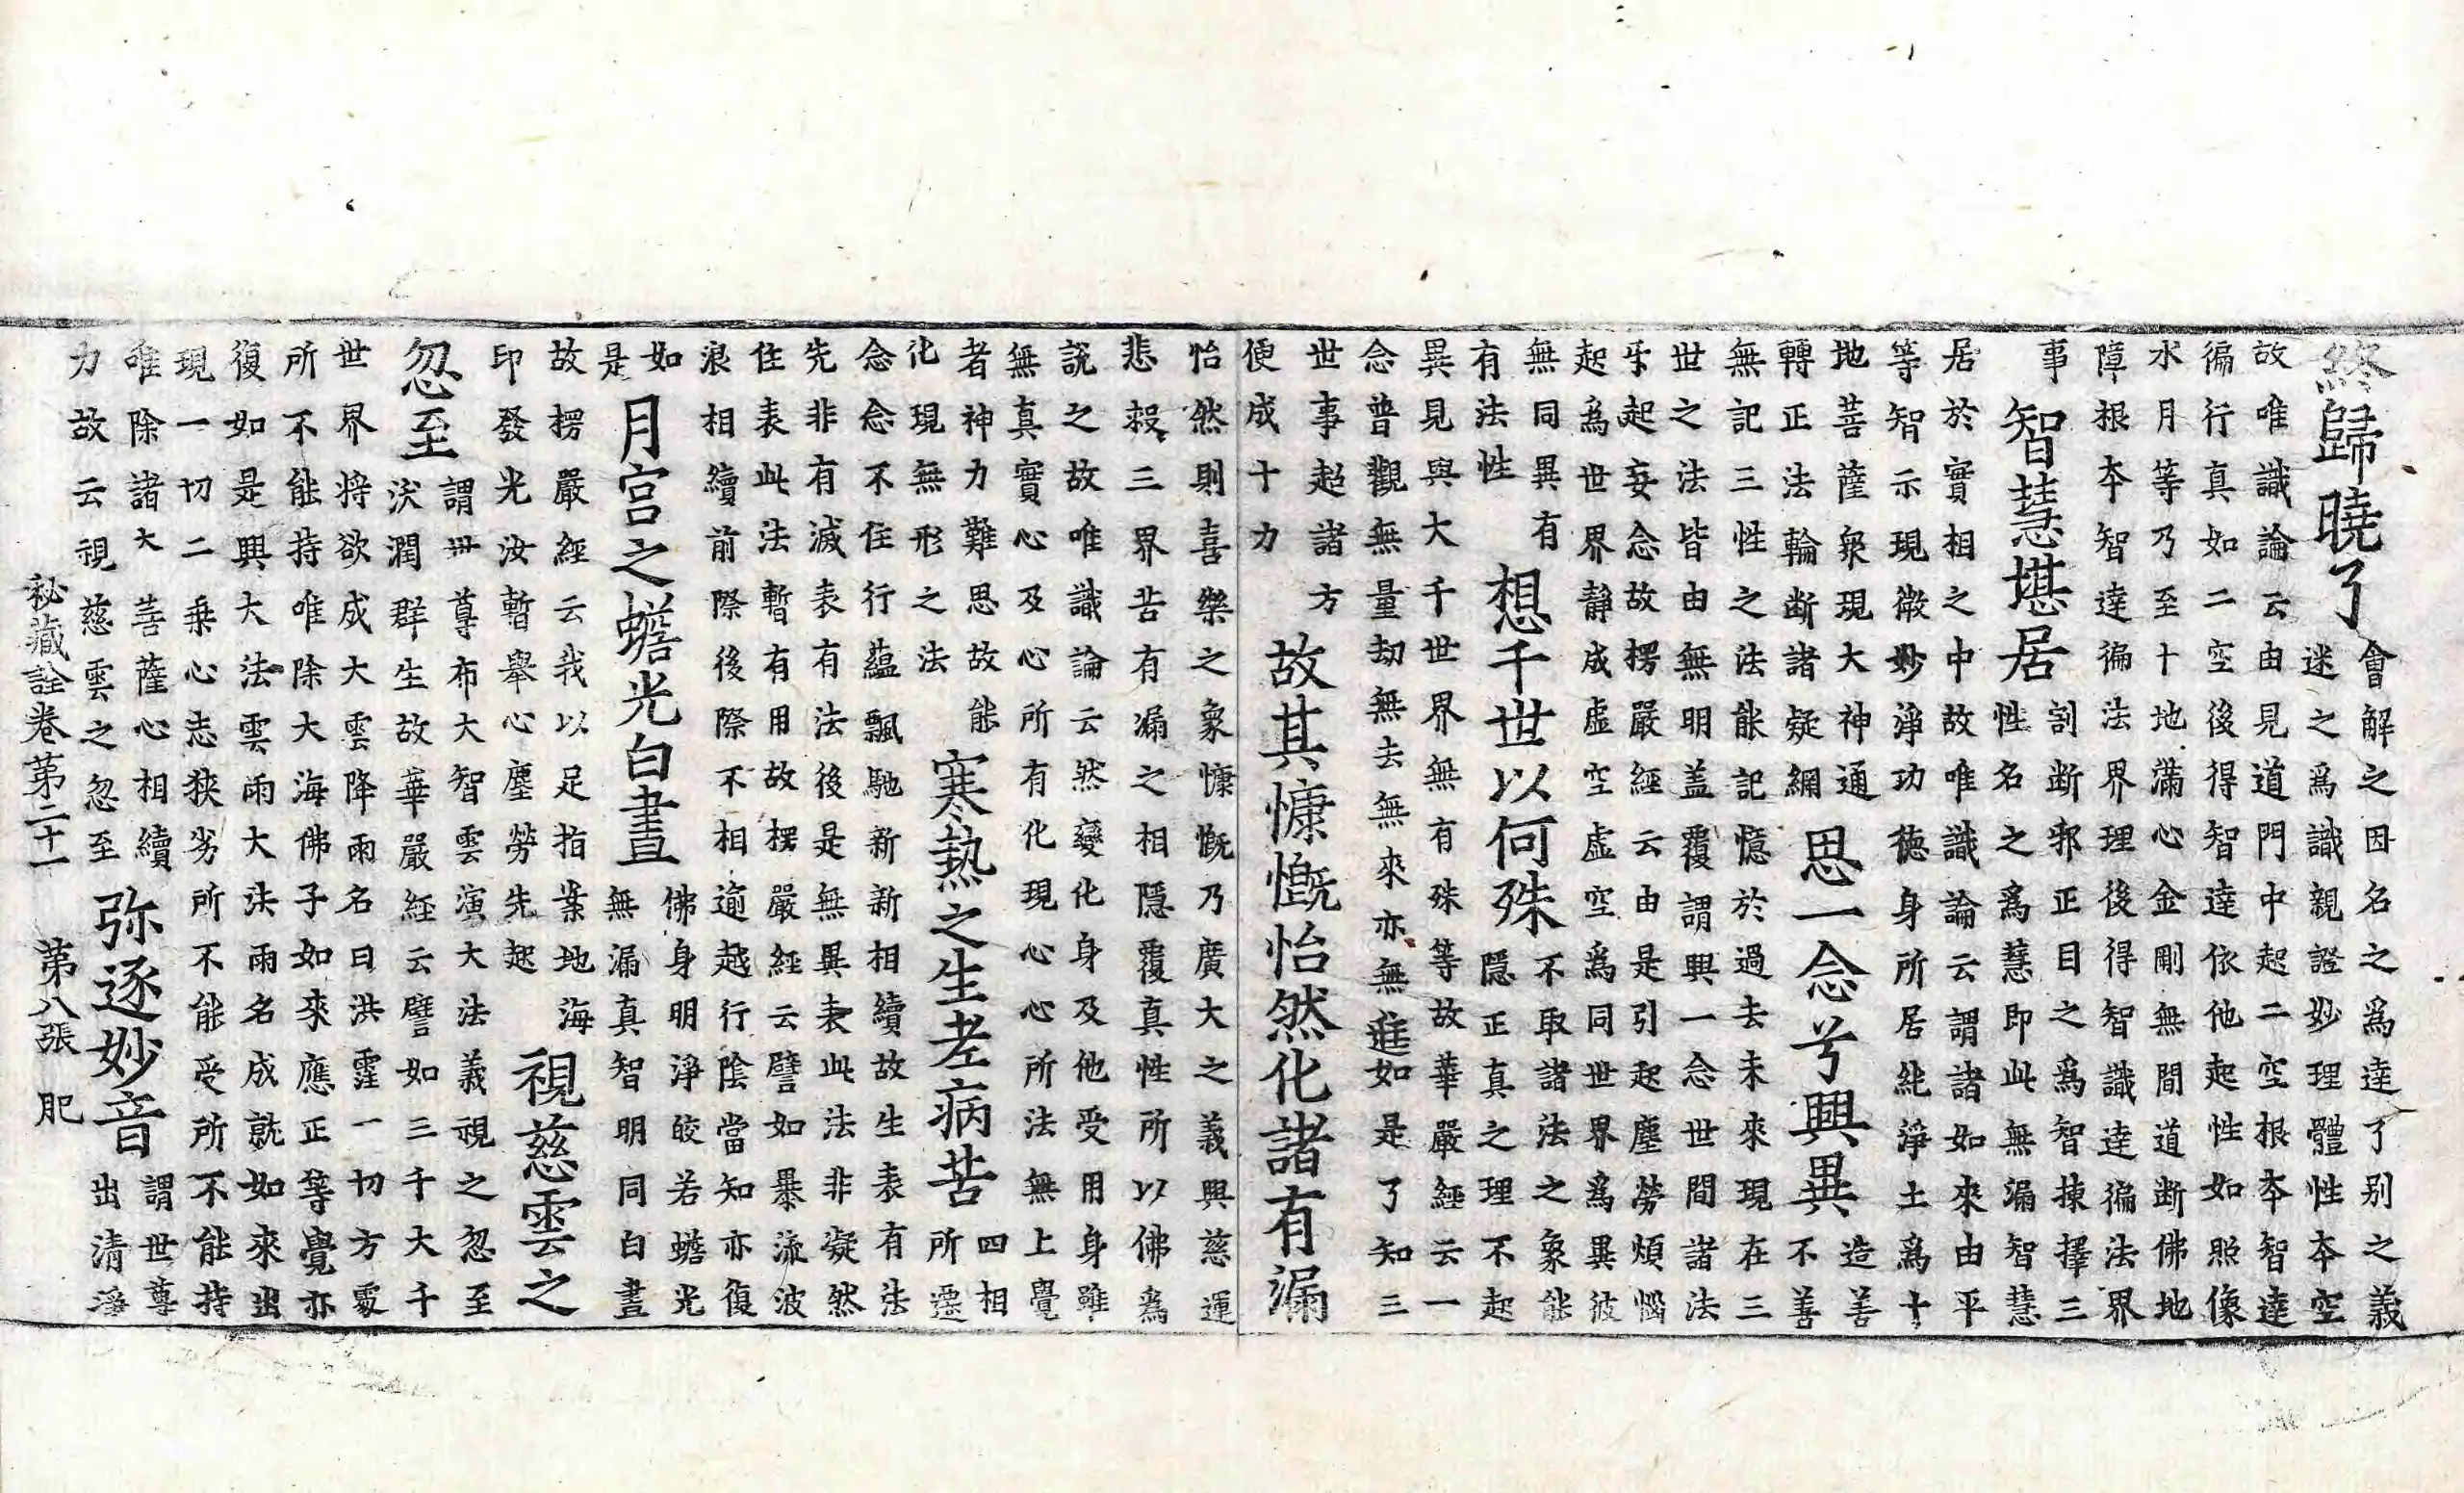 終歸曉了
會解之因名之爲達了別之義
迷之爲識親證妙理體性夲空
故唯識論云由見道門中起二空根夲智達
徧行真如二空後得智達依他起性如照像
水月等乃至十地滿心金剛無間道断佛地
障根夲智達徧法界理後得智識達徧法界
事
智慧堪居
割断邪正目之爲智揀擇三
性名之爲慧即此無漏智慧
居於實相之中故唯識論云謂諸如來由平
等智示現微妙淨功德身所居純淨土爲十
地菩薩衆現大神通
轉正法輪断諸疑網
恩一念兮興異
造善
不善
無記三性之法能記憶於過去未來現在三
世之法皆由無明盖覆謂興一念世間諸法
㸦起妄念故楞嚴經云由是引起塵勞煩惱
起爲世界静成虛空虛空爲同世界爲異彼
無同異有
有法性
想千世以何殊
不取諸法之象能
隱正真之理不起
異見與大千世界無有殊等故華嚴經云一
念普觀無量劫無去無來亦無進如是了知三
世事超諸方
便成十力
故其慷慨怡然化諸有漏
怡然則喜樂之象慷慨乃廣大之義興慈運
悲殺三界苦有漏之相隱覆真性所以佛爲
説之故唯識論云然變化身及他受用身雖
無真實心及心所有化現心心所法無上覺
者神力難思故能
化現無形之法
寒熱之生老病苦
四相
所遷
念念不住行蘊飄馳新新相續故生表有法
先非有滅表有法後是無異表此法非凝然
住表此法暫有用故楞嚴經云譬如暴流波
浪相續前際後際不相逾越行陰當知亦復
如
是
月宫之蟾光白晝
佛身明淨皎若蟾光
無漏真智明同白晝
故楞嚴經云我以足指案地海
印發光汝暫舉心塵勞先起
視慈雲之
忽至
謂世尊布大智雲演大法義視之忽至
洪潤群生故華嚴經云譬如三千大千
世界将欲成大雲降雨名曰洪霔一切方處
所不能持唯除大海佛子如來應正等覺亦
復如是興大法雲雨大法雨名成就如來出
現一切二乗心志狹劣所不能受所不能持
唯除諸大菩薩心相續
力故云視慈雲之忽至
弥逐妙音
謂世尊
出清淨
秘藏詮卷第二十一 第八張 肥